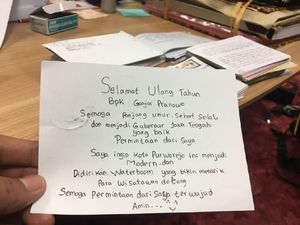 Selamat Ulang Tahun
Bpk Ganjar Pranowo
Semoga Panjang umur Sehat Selalu
dan menjadi Gubernur Jawa Tengah
yang baik
Permintaan dari saya
Saya ingin Kota Purworejo ini menjadi
Modern dan
Didirikan Waterboom yang bikin menarik
Para Wisatawan datang
Semoga Permintaan dari Saya terwujud
Amin...